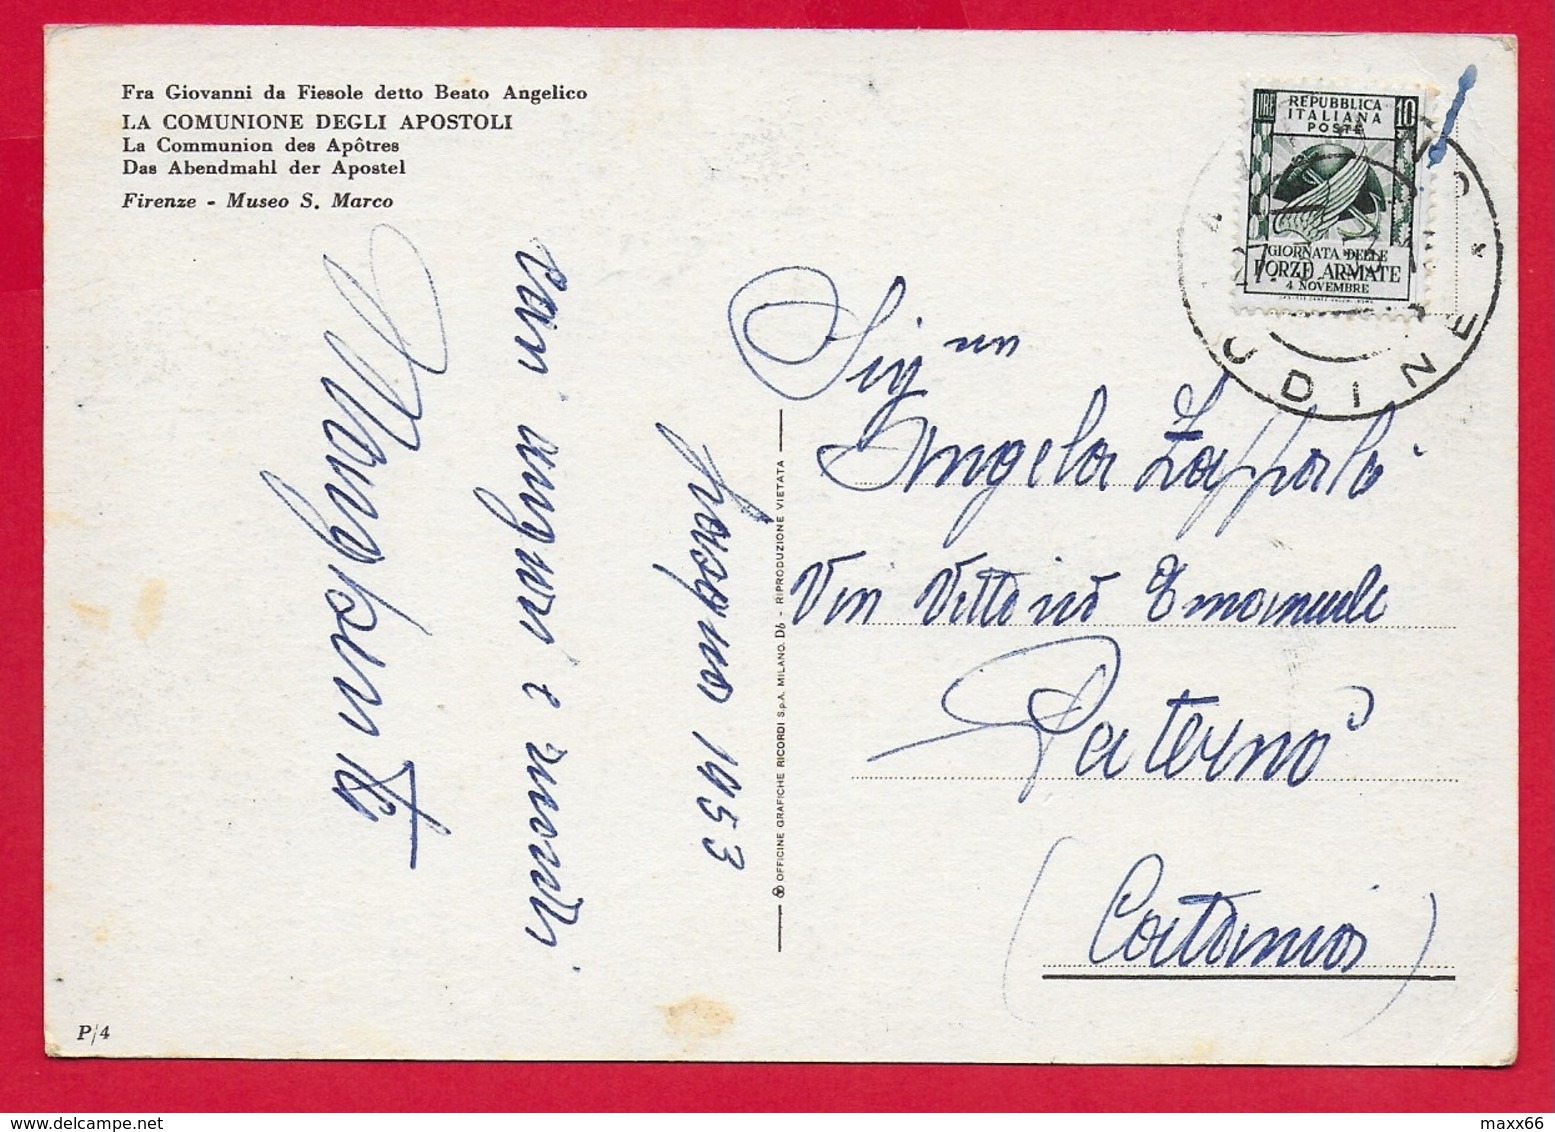 Fra Giovanni da Fiesole detto Beato Angelico
LA COMUNIONE DEGLI APOSTOLI
La Communion des Apôtres
Das Abendmahl der Apostel
Firenze - Museo S. Marco
LIRE
REPUBBLICA
ITALIANA
POSTE
10
GIORNATA DELLE
FORZE ARMATE
4 NOVEMBRE
UDINE
1953
auguri e
OFFICINE GRAFICHE RICORDI S.p.A. MILANO. D6 - RIPRODUZIONE VIETATA
Sig
Angela Zappalà
Via Vittorio Emanuele
Paternò
(Catania)
P/4
maxx66